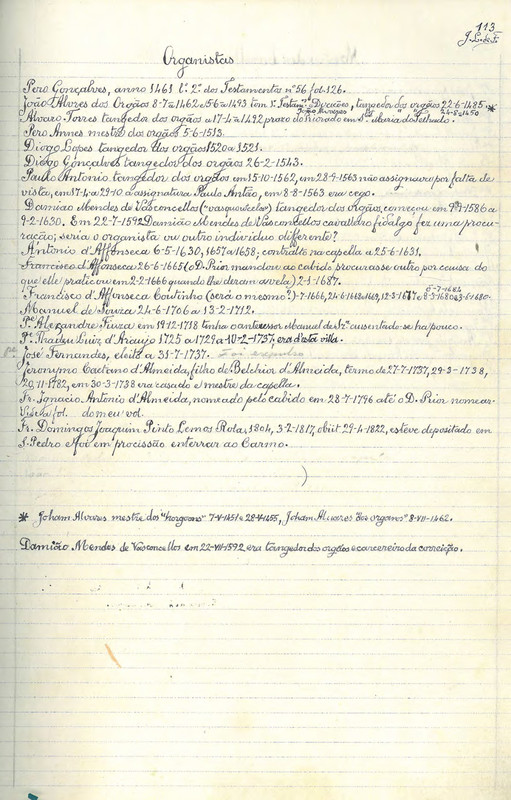 113
Organistas
Pero Gonçalves, anno 1461 l.º 2.º dos Testamentos nº 56 fol. 126.
João Alvres dos Orgãos 8-7-1462 e 56 a 1493 tangedor dos orgãos 22-6-1485 *
João Alvares 24-8-1450
Alvaro Torres tangedor dos orgãos a 17-4-1492 prazo do
Pero Annes mestre dos orgãos 5-6-1513.
Diogo Lopes tangedor dos orgãos 1520 a 1521.
Diogo Gonçalves tangedor dos orgãos 26-2-1543.
Paulo Antonio tangedor dos orgãos em 15-10-1562, em 28-9-1563 não assignou por falta de
vista, em 17-4 a 29-10 a assignatura Paulo Antão, em 8-8-1563 era cego.
Damião Mendes de Vasconcellos tangedor dos orgãos, começou em 1586 a
9-2-1630. Em 22-7-1592 Damião Mendes de Vasconcellos cavalleiro fidalgo fez uma procu-
ração; seria o organista ou outro individuo differente?
António d'Affonseca 6-5-1630, 1657 a 1658; contralto na capella a 25-6-1631.
Francisco d'Affonseca 26-6-1665 (o D. Prior mandou ao cabido procurasse outro por causa do
que elle praticou em 2-2-1666 quando lhe deram a vela) 2-1-1687.
Francisco d'Affonseca Coutinho (será o mesmo?)
Manuel de Souza 24-6-1706 a 13-2-1712.
P.e Alexandre Fiuza em 19-12-1718 tinha o antecessor Manuel de S.za ausentado-se ha pouco.
P.e Thadeu Luiz d'Araujo 1725 a 1729 a 10-2-1737, era d'esta villa.
José Fernandes, eleito a 31-7-1737. foi expulso
Jeronymo Caetano d'Almeida, filho de Belchior d'Almeida, termo de 27-7-1737, 29-3-1738,
20-11-1782, em 30-3-1738 era casado e mestre da capella.
Fr. Ignacio Antonio d'Almeida, nomeado pelo cabido em 28-7-1796 até o D. Prior nomear.
fol. do meu vol.
Fr. Domingos Joaquim Pinto Lemos Rola, 1804, 3-2-1817, obiit 29-4-1822, esteve depositado em
S. Pedro e foi em procissão enterrar ao Carmo.
* Joham Alvares mestre dos "horgoons" 7-V-1451 e 28-V-1455, Joham Alvares "dos organos" 8-VII-1462.
Damião Mendes de Vasconcellos em 22-VII-1592 era tangedor dos orgãos e carcereiro da correição.